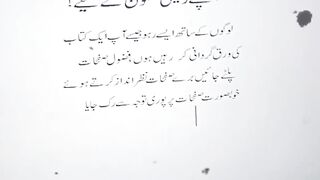 پنے ذہنی سکون کے لیے!
لوگوں کے ساتھ ایسے رہو جیسے آپ ایک کتاب
کی ورق گردانی کر رہیں ہوں، فضول صفحات
پلٹے جائیں برے صفحات نظر انداز کرتے ہوئے
خوبصورت صفحات پر پوری توجہ سے رک جایا